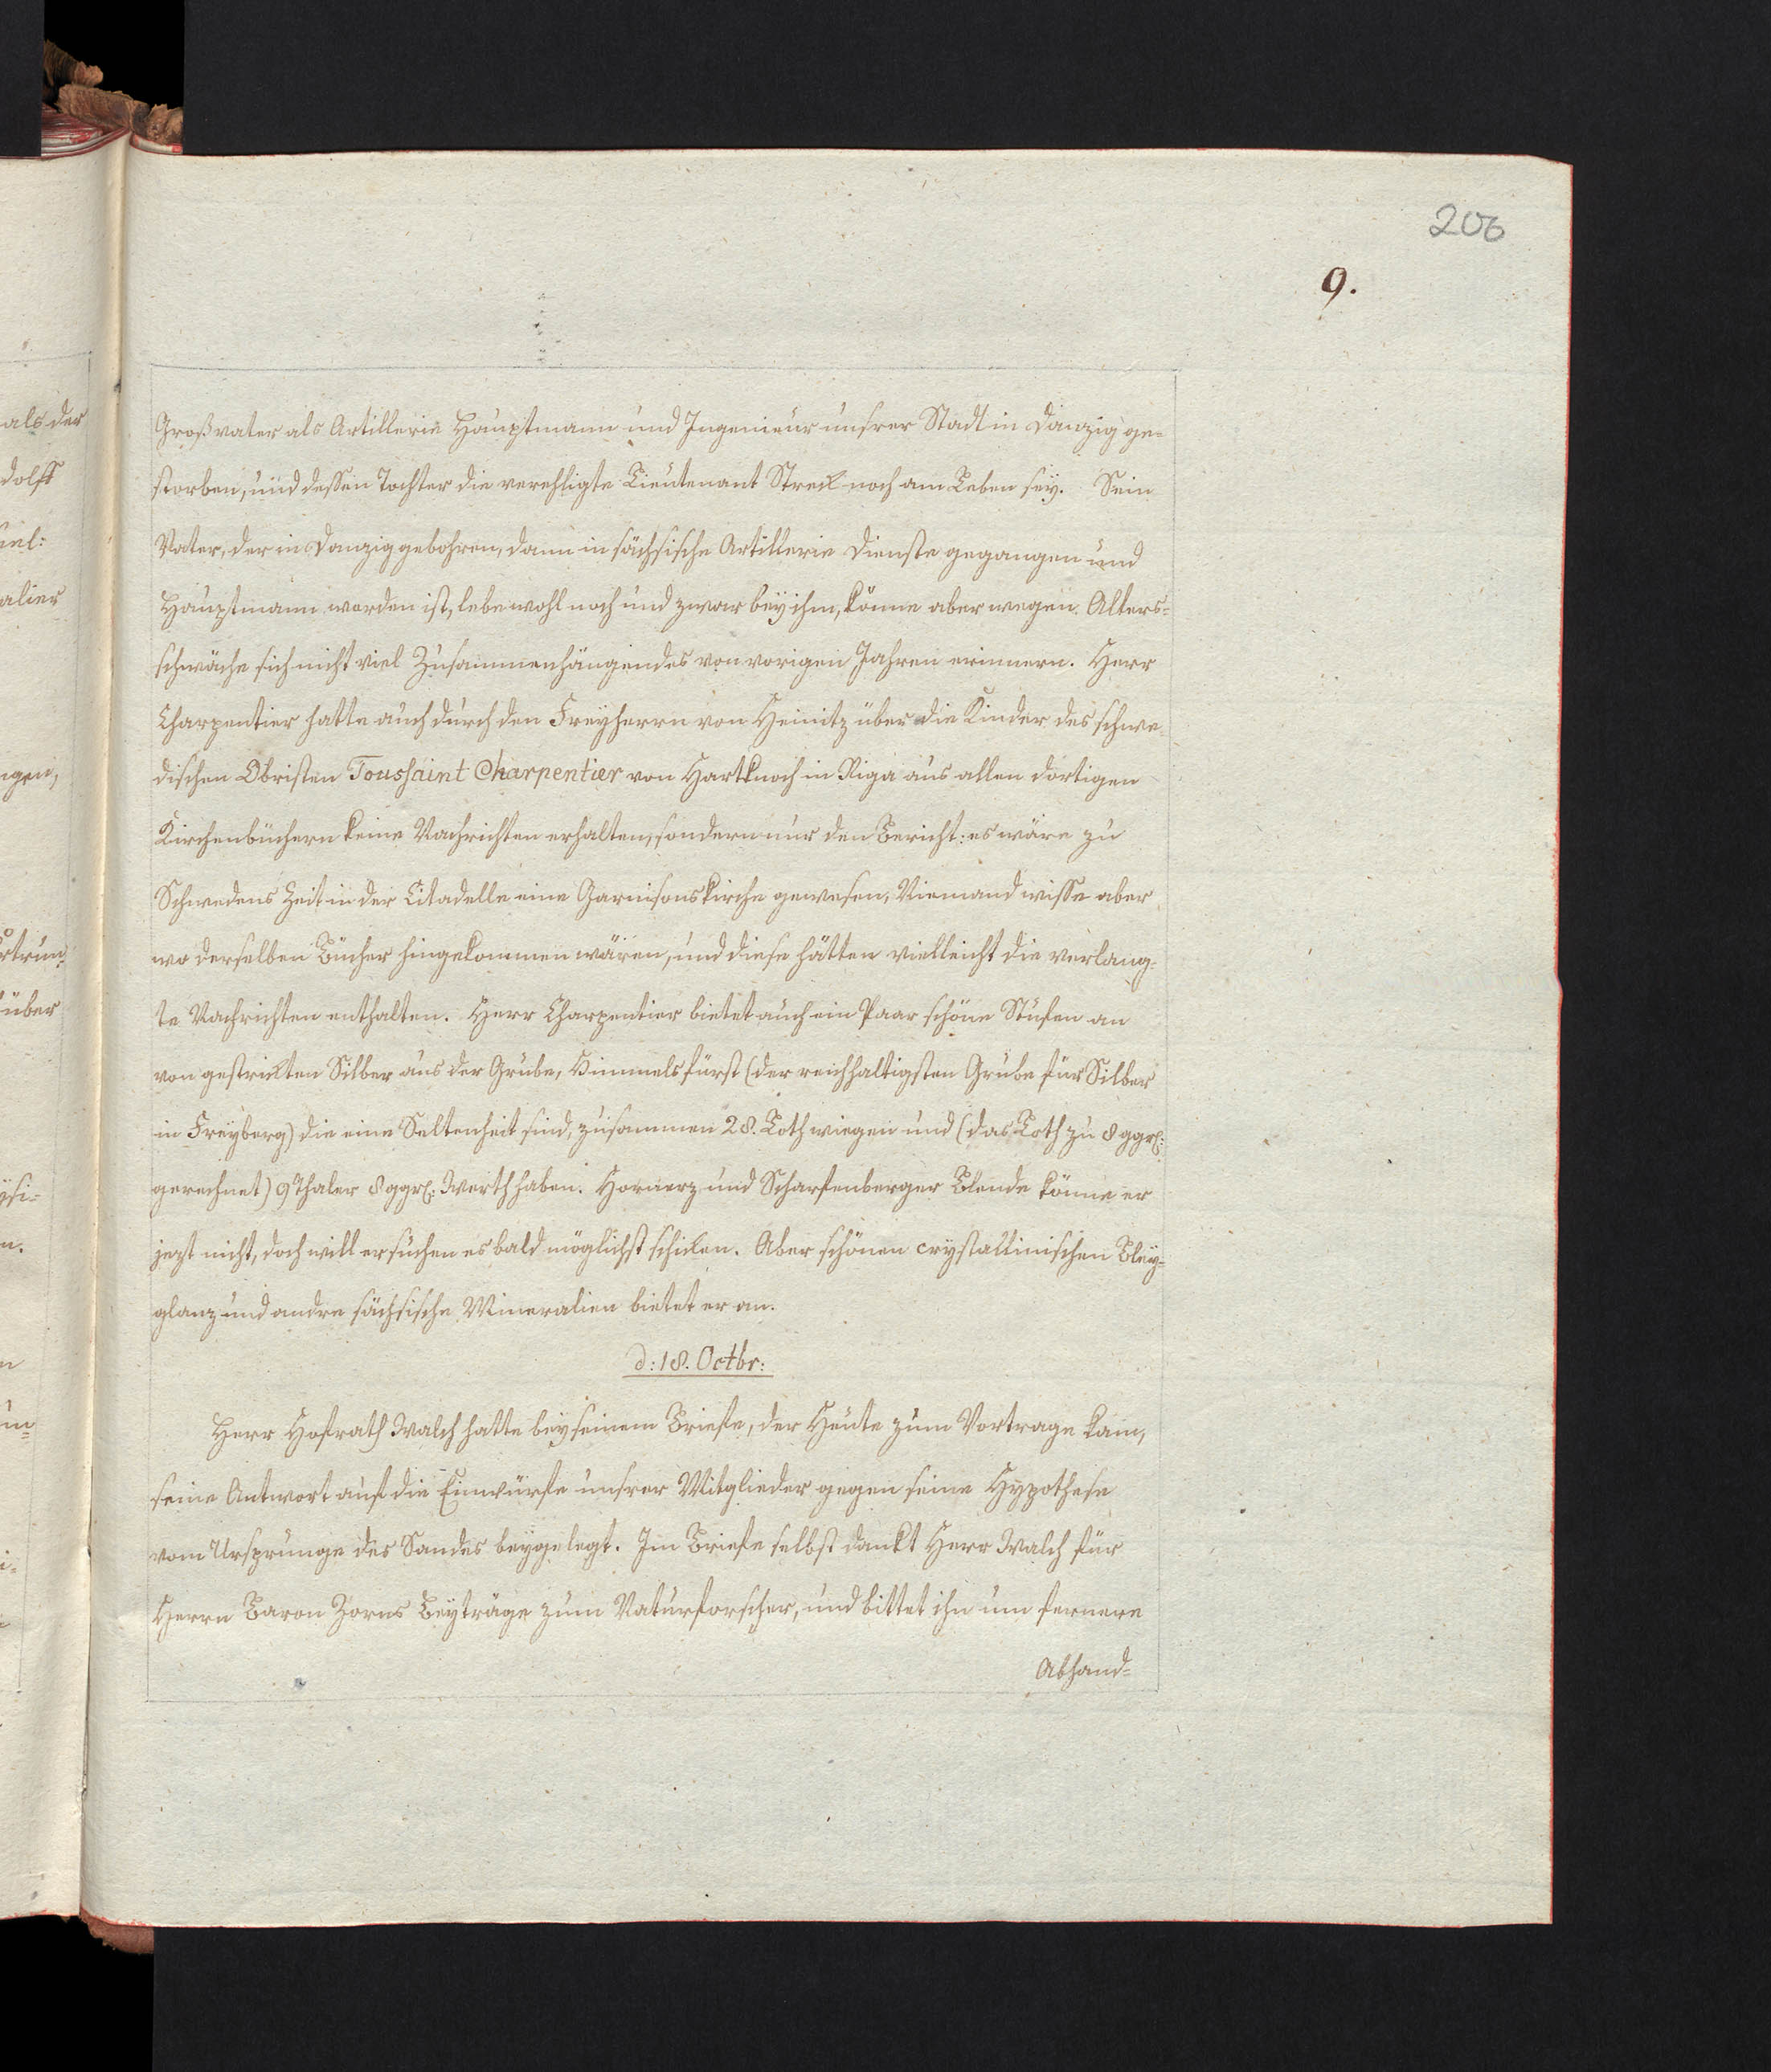 206
9.
Großvater als Artillerie Hauptmann und Ingenieur unsrer Stadt in Danzig ge-
storben, und dessen Tochter die verehligte Lieutenant Streck noch am Leben sey. Sein
Vater, der in Danzig gebohren, dann in sächsische Artillerie Dienste gegangen und
Hauptmann worden ist, lebe wohl noch und zwar bey ihm, könne aber wegen Alters-
schwäche sich nicht viel Zusammenhängendes von vorigen Jahren erinnern. Herr
Charpentier hatte auch durch den Freyherrn von Heinitz über die Kinder des schwe-
dischen Obristen Toussaint Charpentier von Hartknoch in Riga aus allen dortigen
Kirchenbüchern keine Nachrichten erhalten, sondern nur den Bericht: es wäre zu
Schwedens Zeit in der Citadelle eine Garnisonskirche gewesen, Niemand wisse aber
wo derselben Bücher hingekommen wären, und diese hätten vielleicht die verlang-
te Nachrichten enthalten. Herr Charpentier bietet auch ein Paar schöne Stufen an
von gestrickten Silber aus der Grube, Himmelsfürst (der reichhaltigsten Grube für Silber
in Freyberg) die eine Seltenheit sind, zusammen 28. Loth wiegen und (das Loth zu 8 ggrl:
gerechnet) 9 Thaler 8 ggrl: Werth haben. Hornerz und Scharfenberger Blende könne er
jezt nicht, doch will er suchen es bald möglichst schicken. Aber schönen crystallinischen Bley-
glanz und andre sächsische Mineralien bietet er an.
d: 18. Octbr:
Herr Hofrath Walch hatte bey seinem Briefe, der Heute zum Vortrage kam,
seine Antwort auf die Einwürfe unsrer Mitglieder gegen seine Hypothese
vom Ursprunge des Sandes beygelegt. Im Briefe selbst dankt Herr Walch für
Herrn Baron Zorns Beyträge zum Naturforscher, und bittet ihn um fernere
Abhand-